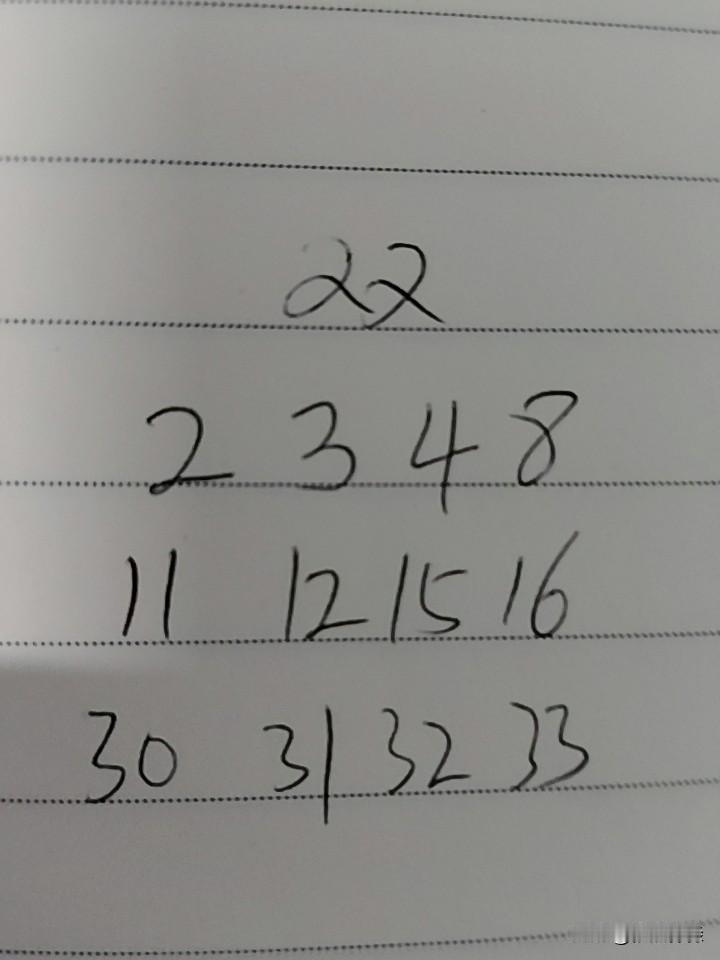 22
2 3 4 8
11 12 15 16
30 31 32 33